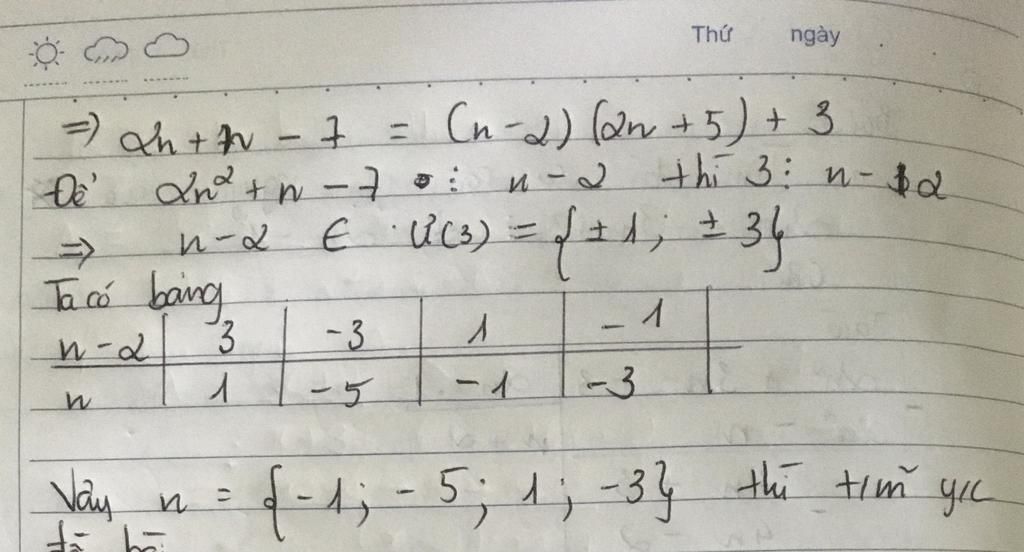 Thứ ngày
=> 2n + n - 7 = (n-2) (2n + 5) + 3
Để 2n² + n - 7 ⋮ n - 2 thì 3 ⋮ n - 2
=> n - 2 ∈ Ư(3) = {±1; ±3}
Ta có bảng
n - 2 3 -3 1 -1
n 1 -5 -1 -3
Vậy n = {-1; -5; 1; -3} thì tìm y/c